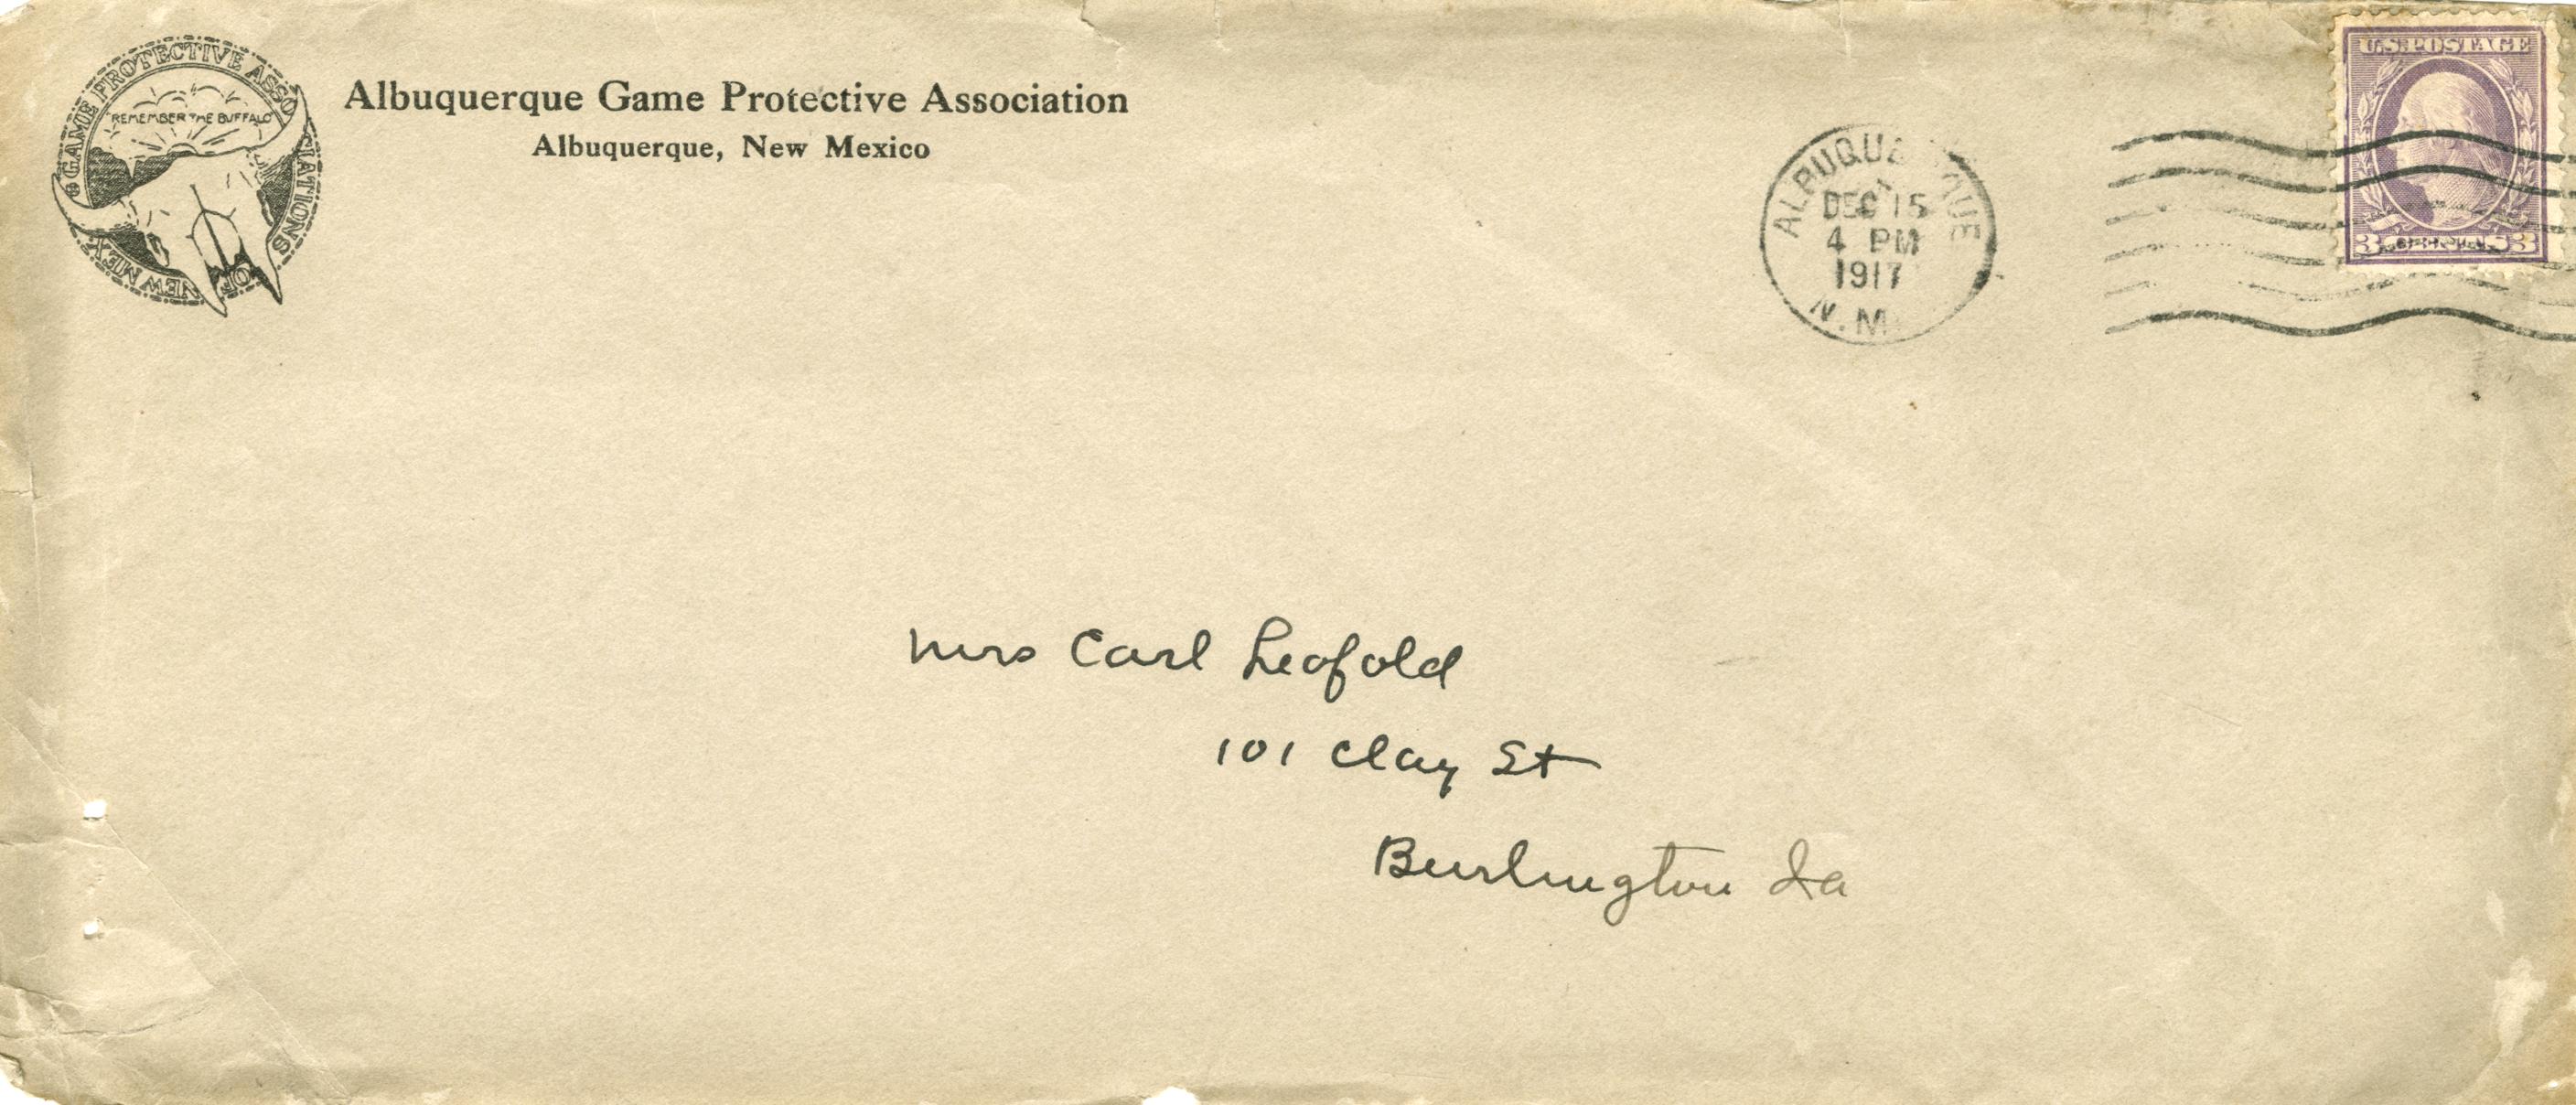 GAME PROTECTIVE ASSOCIATIONS
OF NEW MEX
"REMEMBER THE BUFFALO"
Albuquerque Game Protective Association
Albuquerque, New Mexico
ALBUQUERQUE
DEC 15
4 PM
1917
N. M.
U.S. POSTAGE
3 3
Mrs Carl Leopold
101 Clay St
Burlington Ia